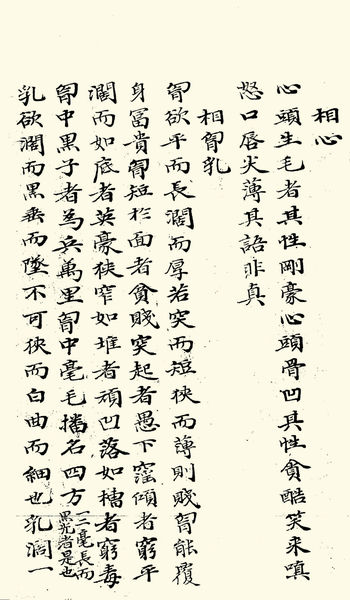 相心
心頭生毛者其性剛豪心頭骨凹其性貪酷笑来嗔
怒口唇尖薄其語非真
相胷乳
胷欲平而長濶而厚若突而短狹而薄則賤胷能覆
身冨貴胷短於面者貧賤突起者愚下窪傾者窮平
濶而如底者英豪狹窄如堆者頑凹落如槽者窮毒
胷中黒子者為兵萬里胷中毫毛播名四方一二毫長而黒光者是也
乳欲濶而黒垂而墜不可狹而白曲而細也乳濶一